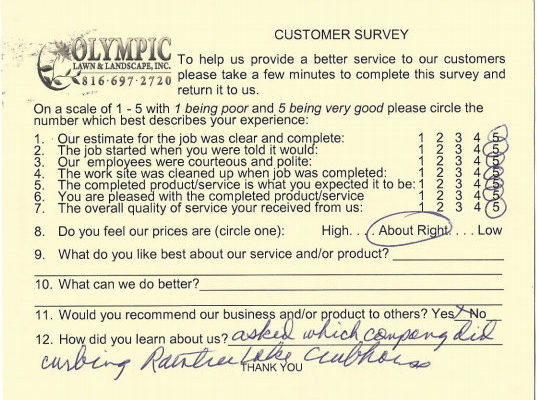 CUSTOMER SURVEY
OLYMPIC
LAWN & LANDSCAPE, INC.
816·697·2720
To help us provide a better service to our customers
please take a few minutes to complete this survey and
return it to us.
On a scale of 1 - 5 with 1 being poor and 5 being very good please circle the
number which best describes your experience:
1. Our estimate for the job was clear and complete: 1 2 3 4 5
2. The job started when you were told it would: 1 2 3 4 5
3. Our employees were courteous and polite: 1 2 3 4 5
4. The work site was cleaned up when job was completed: 1 2 3 4 5
5. The completed product/service is what you expected it to be: 1 2 3 4 5
6. You are pleased with the completed product/service 1 2 3 4 5
7. The overall quality of service your received from us: 1 2 3 4 5
8. Do you feel our prices are (circle one): High. . . . About Right. . . . Low
9. What do you like best about our service and/or product?
10. What can we do better?
11. Would you recommend our business and/or product to others? Yes X No
12. How did you learn about us? asked which company did
curbing Raintree Lake Clubhouse
THANK YOU